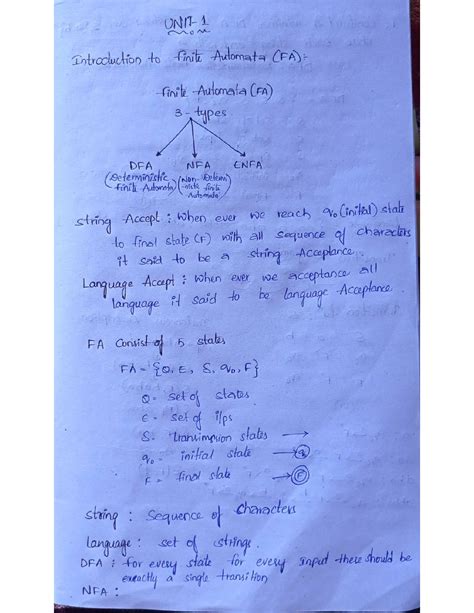 UNIT-1
Introduction to finite Automata (FA):-
finite Automata (FA)
3-types
DFA NFA ENFA
(Deterministic finite Automata) (Non-Determinstic finite Automata)
string Accept : when ever we reach q₀ (initial) state
to final state (F) with all sequence of characters
it said to be a string Acceptance.
Language Accept : when ever we acceptance all
language it said to be language Acceptance.
FA Consist of 5 states
FA = {Q, Ɛ, S, q₀, F}
Q = set of states
Ɛ = set of i/ps
S = states →
q₀ = initial state → q₀
F = final state → F
string : Sequence of characters
language : set of strings.
DFA : for every state for every input there should be
exactly a single transition
NFA :